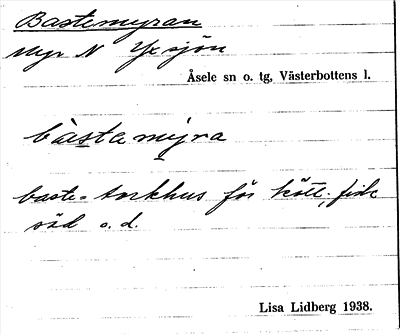 Bastemyran
Myr N Yxsjön
Åsele sn o. tg, Västerbottens l.
bàstamýra
baste = torkhus för kött, fisk
säd o. d.
Lisa Lidberg 1938.